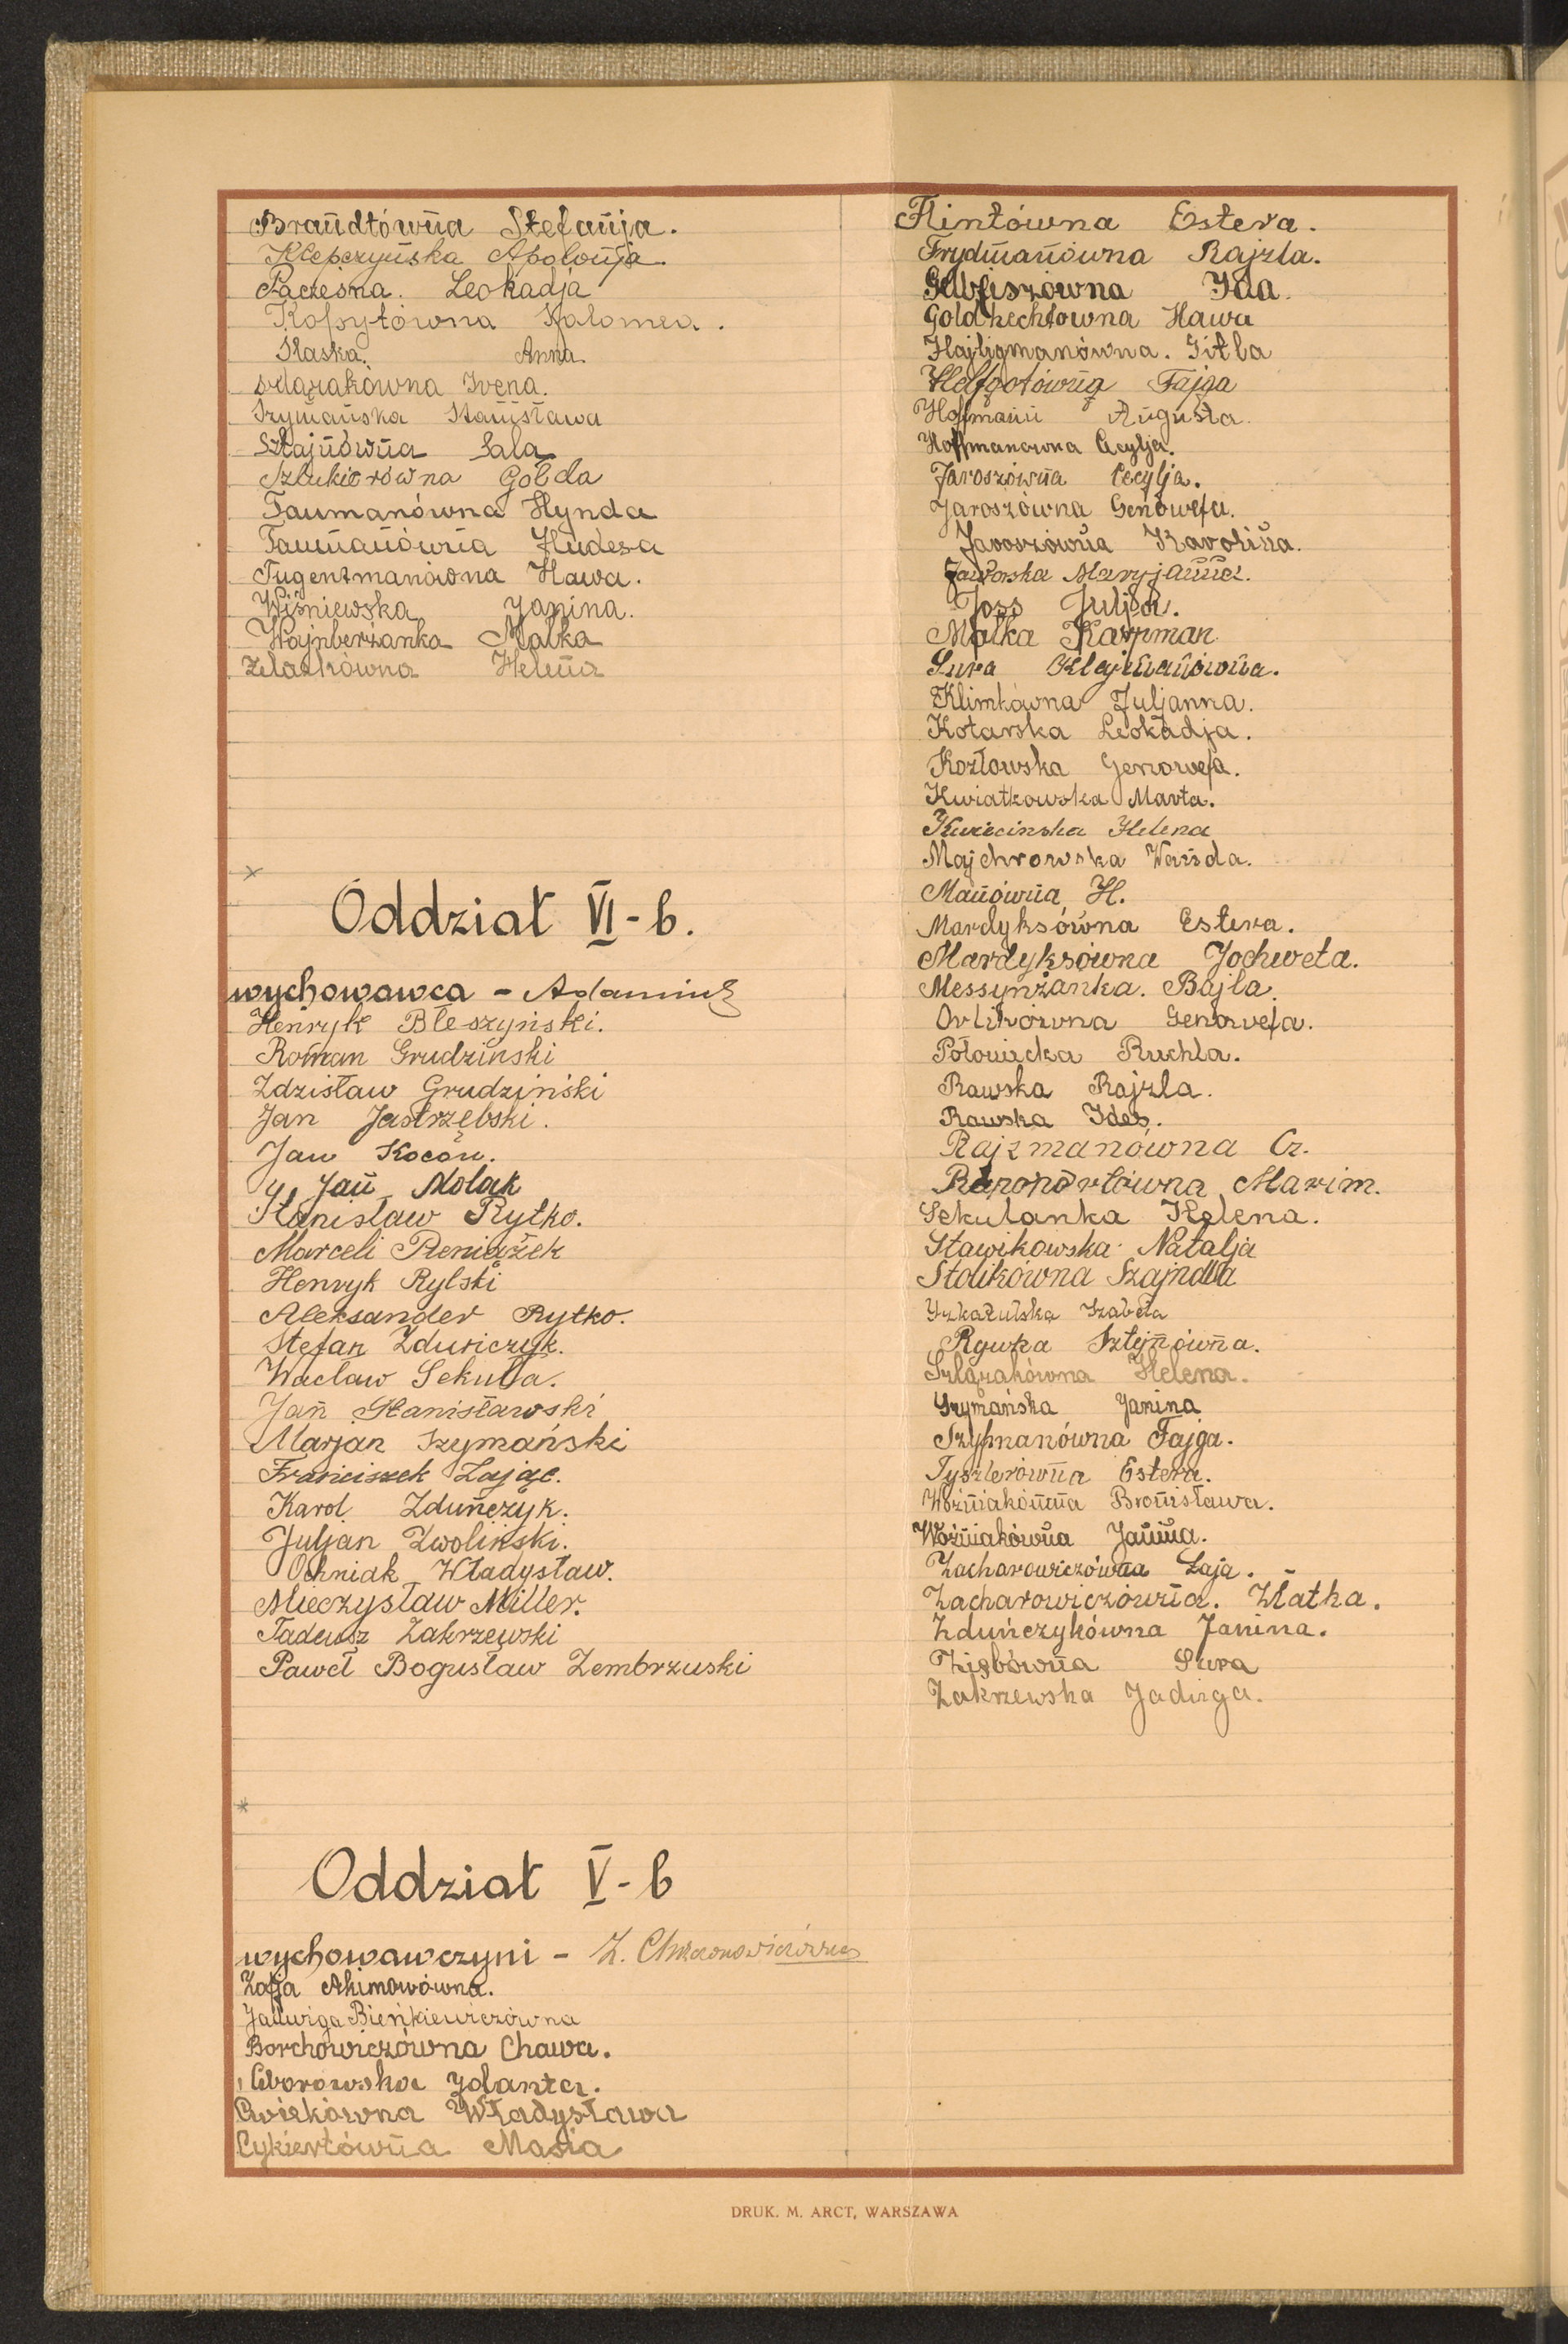 Brandtówna Stefanja.
Klepczyńska Apolonja.
Pacześna. Leokadja
Kopytówna Salomea.
Słaska. Anna.
Irena.
Szymańska Stanisława
Sztajnówna Sala
Szlukierówna Golda
Taumanówna Hynda
Taumanówna Hudesa
Tugentmanówna Hawa.
Wiśniewska Janina.
Wajnberżanka Malka
Żelazkówna Helena
Oddział VI-b.
wychowawca - Adamiuk
Henryk Bleszyński.
Roman Grudziński
Zdzisław Grudziński
Jan Jastrzębski.
Jan Kocoń.
Jan Molak
Stanisław Rytko.
Marceli Pieniążek
Henryk Rylski
Aleksander Rytko.
Stefan Zduńczyk.
Wacław Sekuła.
Jan Stanisławski
Marjan Szymański
Franciszek Zając.
Karol Zduńczyk.
Juljan Zwoliński.
Ochniak Władysław.
Mieczysław Miller.
Tadeusz Zakrzewski
Paweł Bogusław Zembrzuski
Oddział V-b
wychowawczyni - Z.
Zofja Akimowówna.
Jadwiga Bieńkiewiczówna
Borchowiczówna Chawa.
Cborowska Jolanta.
Ćwiekówna Władysława
Cykiertówna Masia
Flintówna Estera.
Frydmanówna Rajzla.
Gelbfiszówna Ida.
Goldhechtówna Hawa
Hajligmanówna. Gitla
Helfgotówna Fajga
Hoffmann Augusta.
Hoffmanówna Cecylja.
Jaroszówna Cecylja.
Jaroszówna Genowefa.
Jaroszówna Karolina.
Jaworska Maryjanna.
Joss Julja.
Malka Karpman
Sura Klajmanówna.
Klimtówna Juljanna.
Kotarska Leokadja.
Kozłowska Genowefa.
Kwiatkowska Marta.
Kwiecinska Helena
Majchrowska Wanda.
Manówna H.
Mardyksówna Estera.
Mardyksówna Jochweta.
Messynżanka. Bajla.
Orlikówna Genowefa.
Połowiecka Ruchla.
Rawska Rajzla.
Rawska Ides.
Rajzmanówna Cz.
Rapoportówna Marim.
Sekulanka Helena.
Stawikowska Natalja
Stolikówna Szajndla
Szkazulska Izabela
Rywka Sztejnówna.
Szlązakówna Helena.
Szymańska Janina
Szyfmanówna Fajga.
Tyszlerówna Estera.
Woźniakówna Bronisława.
Woźniakówna Janina.
Zacharowiczówna Łaja.
Zacharowiczówna. Złatka.
Zduńczykówna Janina.
Zigbówna Sura
Zakrzewska Jadwiga.
DRUK. M. ARCT, WARSZAWA